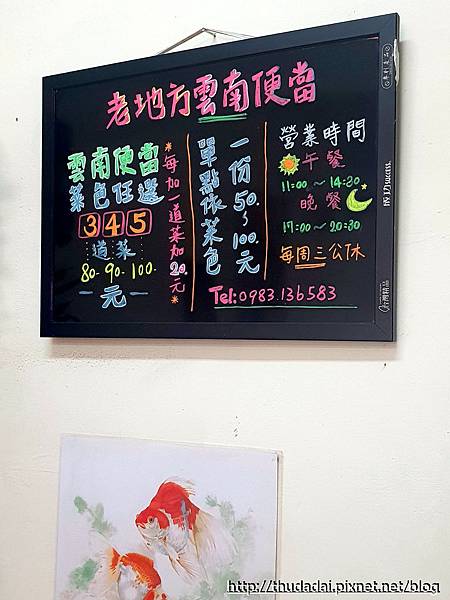 老地方雲南便當
雲南便當
菜色任選
3 4 5
道菜
80-90-100.
一元一
*每加一道菜加20元*
單點依菜色
一份50~100元
營業時間
午餐
11:00~14:30
晚餐
17:00~20:30
每周三公休
Tel:0983.136583
http://thudadai.pixnet.net/blog